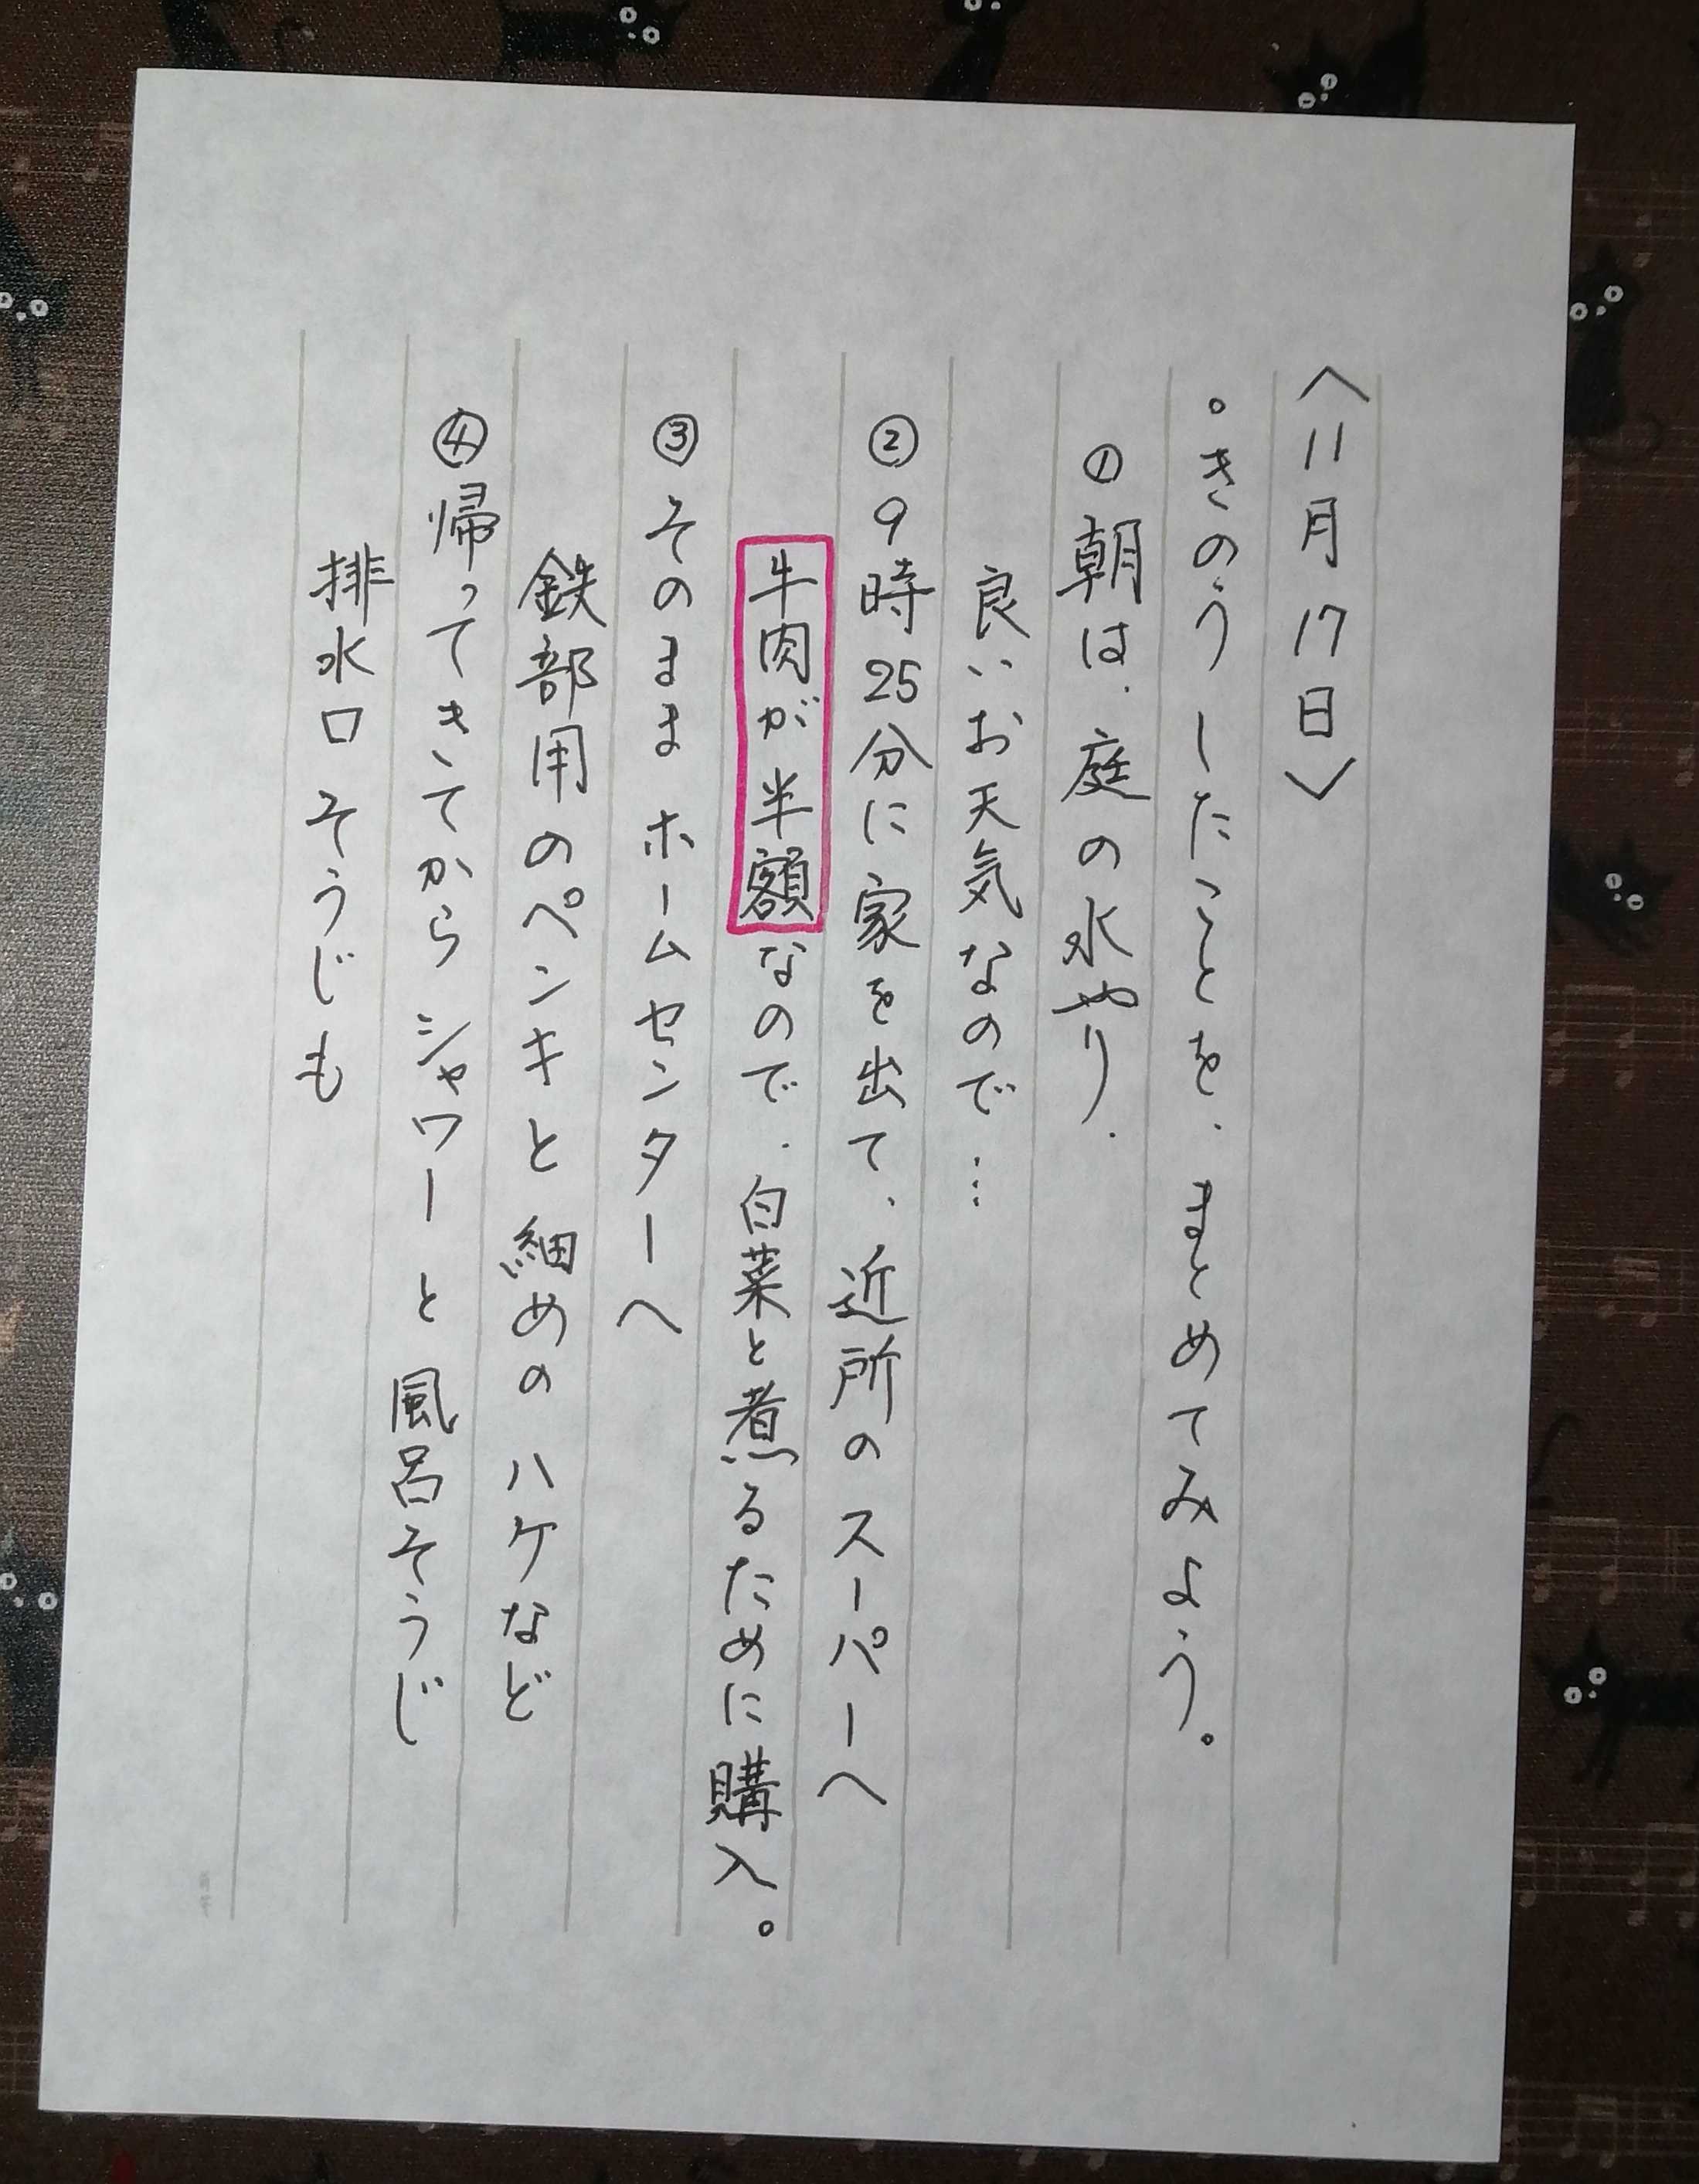 〈11月17日〉
。きのうしたことを、まとめてみよう。
①朝は、庭の水やり、
良いお天気なので…
②9時25分に家を出て、近所のスーパーへ
牛肉が半額なので、白菜と煮るために購入。
③そのままホームセンターへ
鉄部用のペンキと細めのハケなど
④帰ってきてからシャワーと風呂そうじ
排水口そうじも